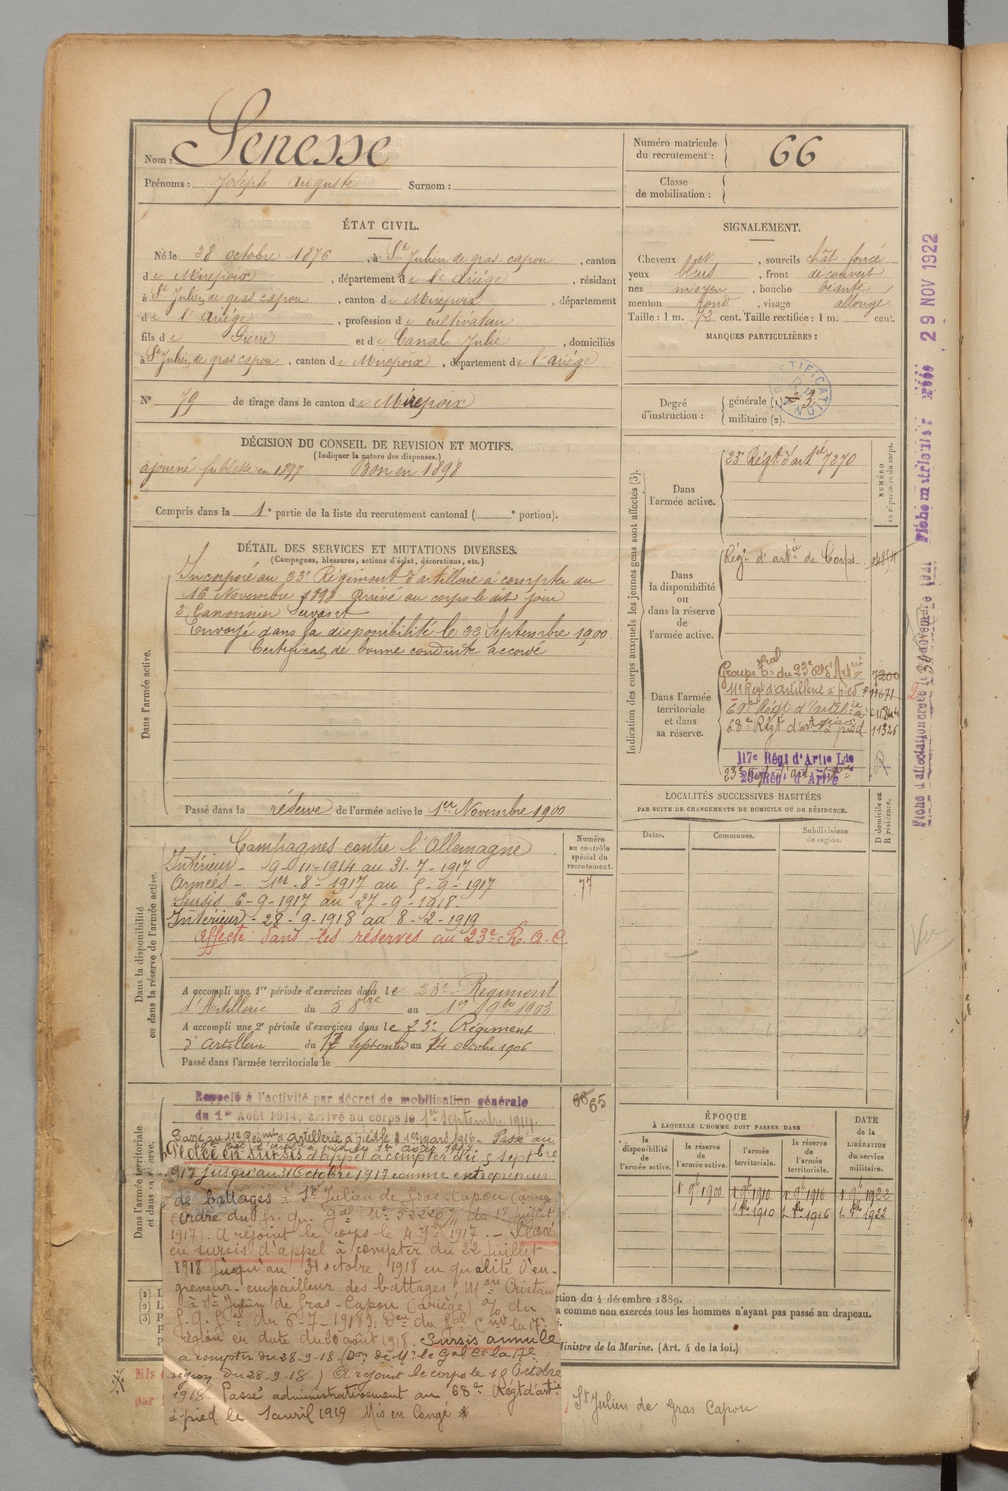 Nom : Senesse
Prénoms : Joseph Auguste Surnom :
Numéro matricule du recrutement : 66
Classe de mobilisation :
ÉTAT CIVIL.
Né le 28 octobre 1876, à St Julien de gras capou, canton
de Mirepoix, département de l'Ariège, résidant
à St Julien de gras capou, canton de Mirepoix, département
de l'Ariège, profession de cultivateur
fils de Pierre et de Canal Julie, domiciliés
à St Julien de gras capou, canton de Mirepoix, département de l'Ariège
N° 79 de tirage dans le canton de Mirepoix
SIGNALEMENT.
Cheveux , sourcils chât. foncé
yeux bleus, front découvert
nez moyen, bouche béante
menton rond, visage allongé
Taille : 1 m. 72 cent. Taille rectifiée : 1 m. cent.
MARQUES PARTICULIÈRES :
RECTIFICATION
Degré d'instruction : générale (1). 3
militaire (2).
DÉCISION DU CONSEIL DE REVISION ET MOTIFS.
(Indiquer la nature des dispenses.)
ajourné faiblesse en 1897 Bon en 1898
Compris dans la 1e partie de la liste du recrutement cantonal ( e portion).
DÉTAIL DES SERVICES ET MUTATIONS DIVERSES.
(Campagnes, blessures, actions d'éclat, décorations, etc.)
Dans l'armée active.
Incorporé au 23e Régiment d'artillerie à compter du
16 Novembre 1898 Arrivé au corps le dit jour
2e Canonnier Servant
Envoyé dans la disponibilité le 22 Septembre 1900
Certificat de bonne conduite accordé
Passé dans la réserve de l'armée active le 1er Novembre 1900
Indication des corps auxquels les jeunes gens sont affectés (3).
NUMÉRO au répertoire du corps.
Dans l'armée active.
23e Régt d'artie 7270
Dans la disponibilité ou dans la réserve de l'armée active.
Régt d'artie de Corps
Dans l'armée territoriale et dans sa réserve.
Groupe du 23e d'Artie 7200
11e Régt d'artillerie à pied 11671
Régt d'Artie
68e Régt d'art à pied 11326
117e Régt d'Artie Lde
Régt d'Artie
LOCALITÉS SUCCESSIVES HABITÉES
PAR SUITE DE CHANGEMENTS DE DOMICILE OU DE RÉSIDENCE.
Dates. Communes. Subdivisions de région. D domicile ou R résidence.
29 NOV 1922
Dans la disponibilité ou dans la réserve de l'armée active.
Numéro au contrôle spécial du recrutement.
77
Campagnes contre l'Allemagne
Intérieur - 1914 au 31-7-1917
Armées - 1er-8-1917 au 5-9-1917
Sursis 6-9-1917 au 27-9-1918
Intérieur - 28-9-1918 au 8-2-1919
Affecté dans les réserves au 23e R.A.C.
A accompli une 1re période d'exercices dans le 23e Régiment
d'Artillerie du 8bre au 1er 9bre 1903
A accompli une 2e période d'exercices dans le 23e Régiment
d'artillerie du 17 Septembre au 14 octobre 1906
Passé dans l'armée territoriale le
Dans l'armée territoriale et dans sa
Rappelé à l'activité par décret de mobilisation générale
du 1er Août 1914, arrivé au corps le 1er Septembre 1914
Passé au 11e Régiment d'Artillerie à pied le 1er mars 1916. Passé au
Placé en sursis d'appel à compter du 5 septbre
1917 jusqu'au 31 Octobre 1917 comme entrepreneur
de battages à St Julien de Gras Capou (Ariège)
(ordre du Gr. Qu. Gal N° 52220 du 15 juillet
1917). A rejoint le corps le 4-9bre 1917. - Placé
en sursis d'appel à compter du 22 juillet
1918 jusqu'au 31 octobre 1918 en qualité d'en-
greneur-empailleur des battages, Mon Cristau
à St Julien de Gras-Capou (Ariège) % du
G.Q.Gal du 6-7-1918, Don du Gal Ct la 17e
région en date du 20 août 1918. Sursis annulé
à compter du 28-9-18 (Don de Mr le Gal Ct la 17e
région du 28-9-18) A rejoint le corps le 18 Octobre
1918. Passé administrativement au 68e Régt d'artie
à pied le 1 avril 1919 Mis en Congé *
65
ÉPOQUE
À LAQUELLE L'HOMME DOIT PASSER DANS
la disponibilité de l'armée active. la réserve de l'armée active. l'armée territoriale. la réserve de l'armée territoriale. DATE de la LIBÉRATION du service militaire.
1 9bre 1900 1 9bre 1910 1 9bre 1916 1 9bre 1922
1. 8bre 1910 1. 8bre 1916 1. 8bre 1922
(1)
(2)
(3)
ction du 4 décembre 1889.
a comme non exercés tous les hommes n'ayant pas passé au drapeau.
Ministre de la Marine. (Art. 4 de la loi.)
St Julien de Gras Capou